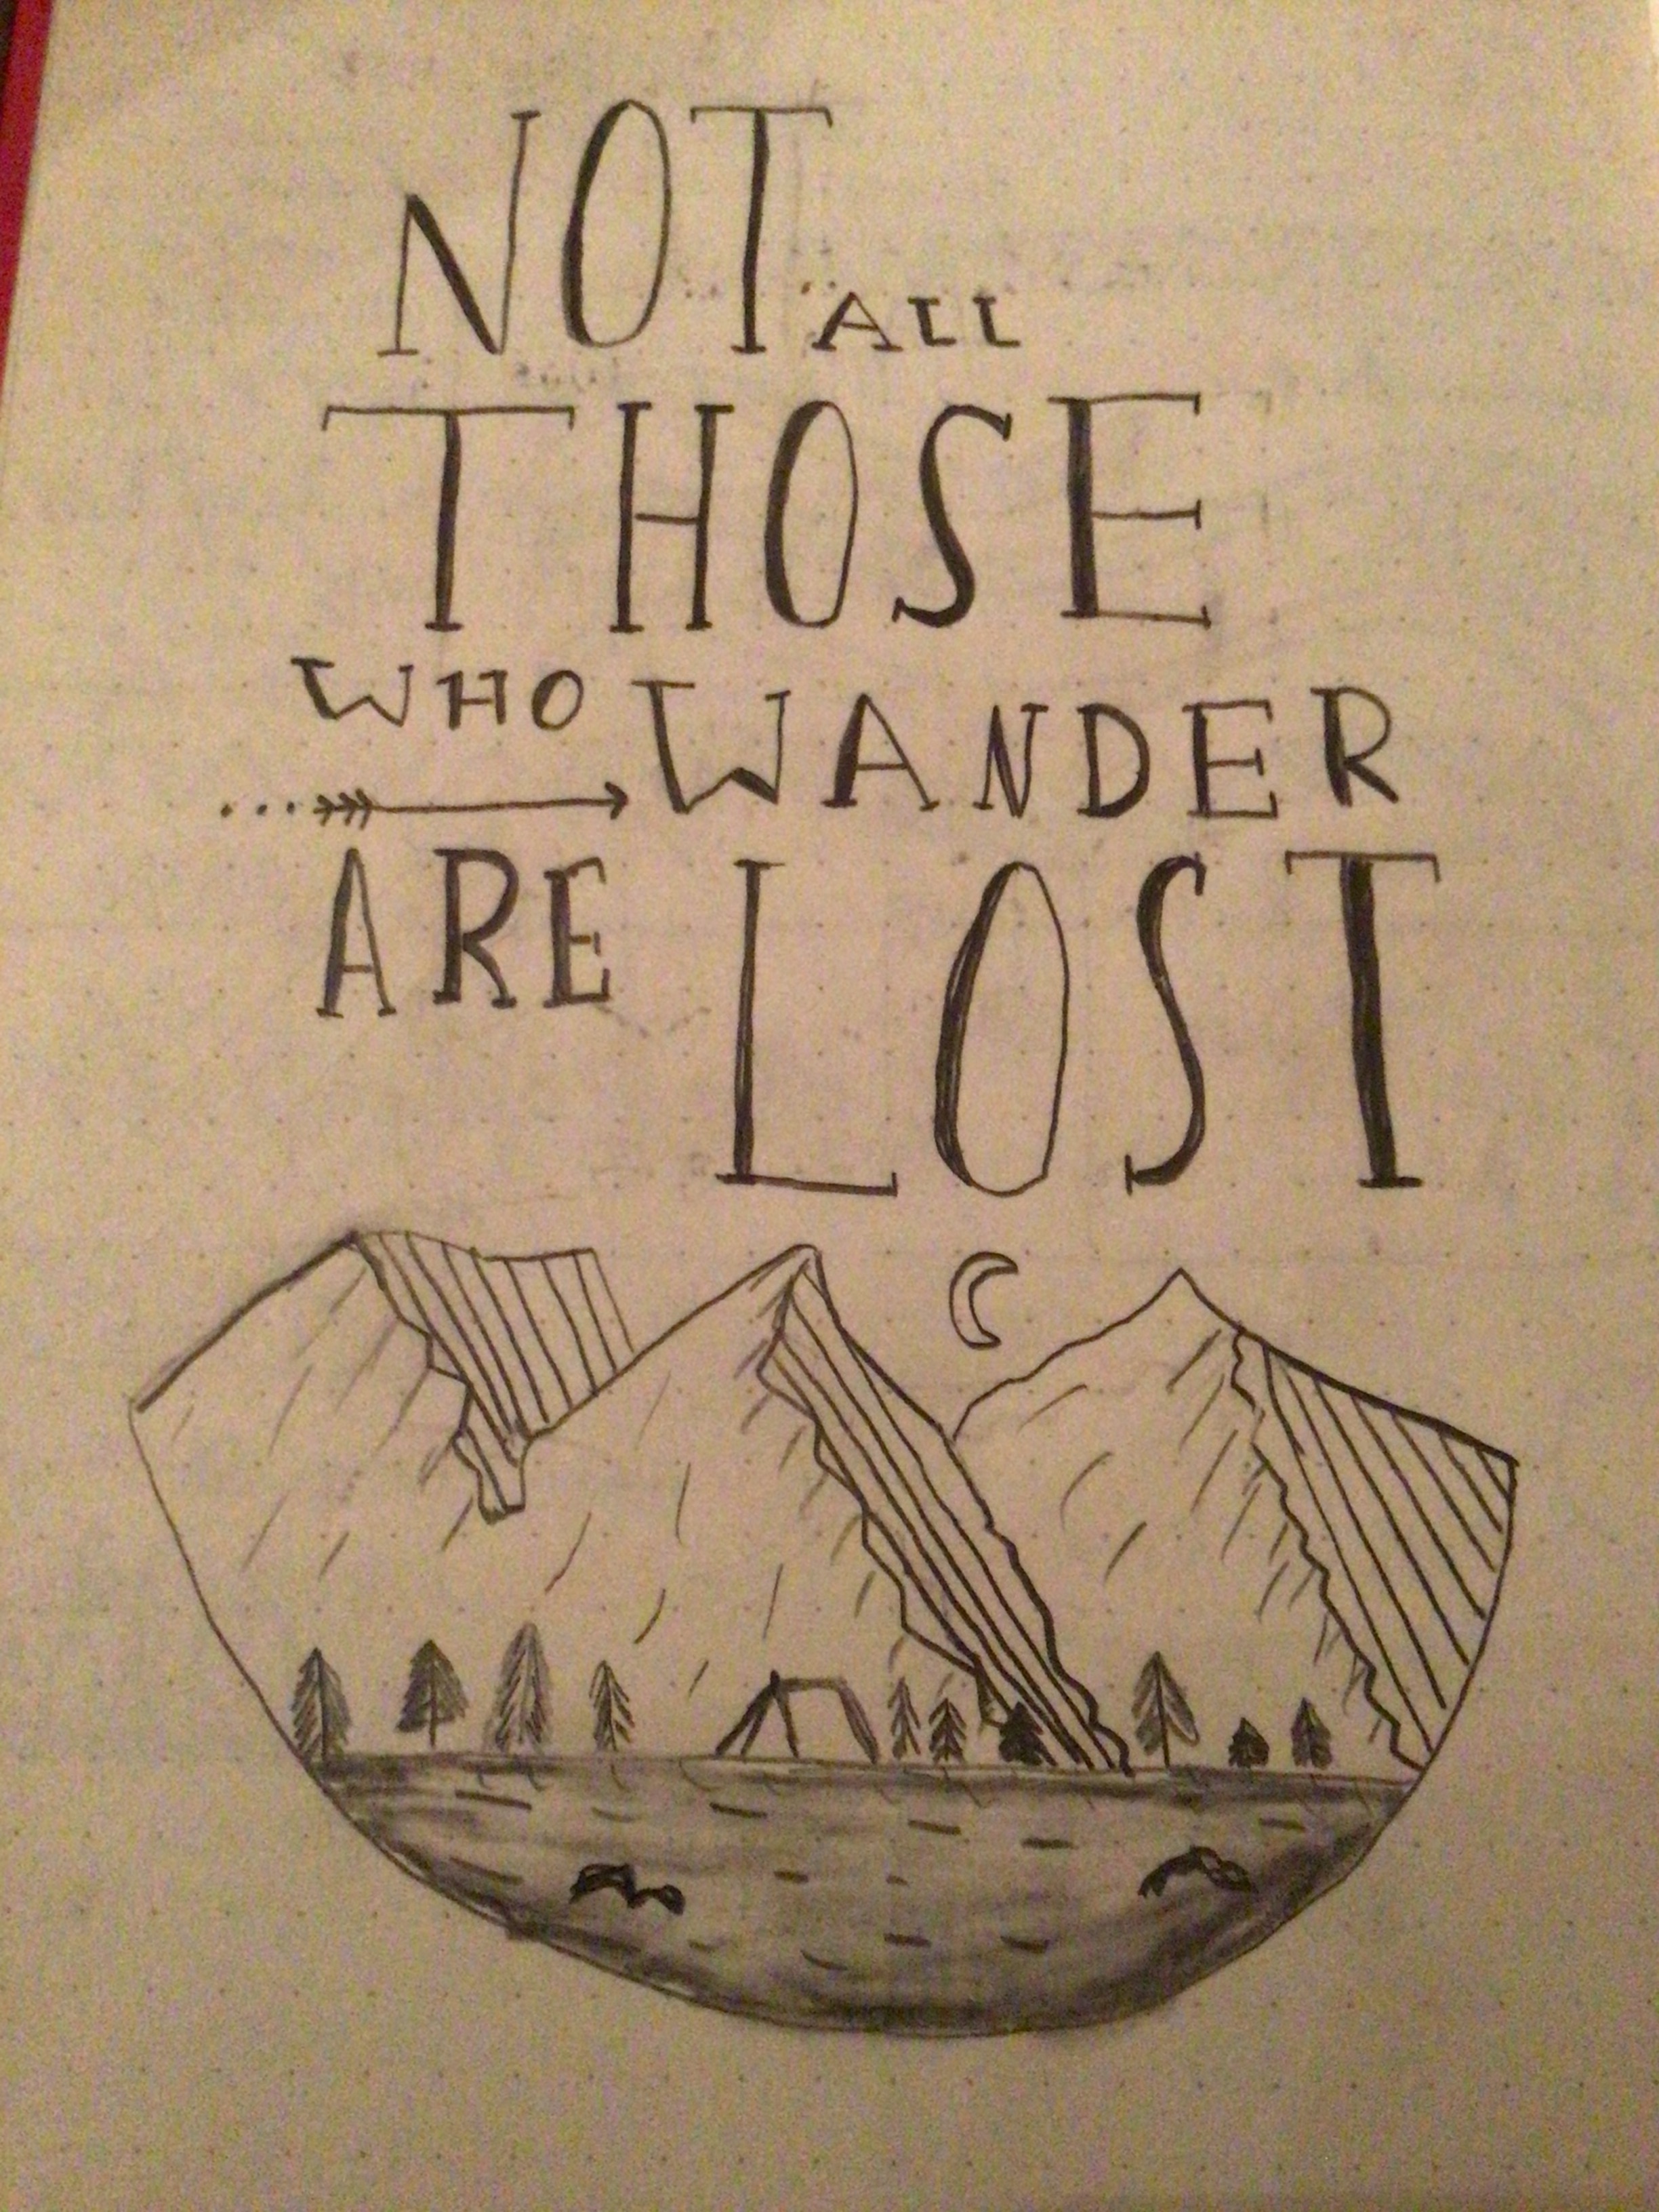 NOT ALL
THOSE
WHO WANDER
ARE LOST